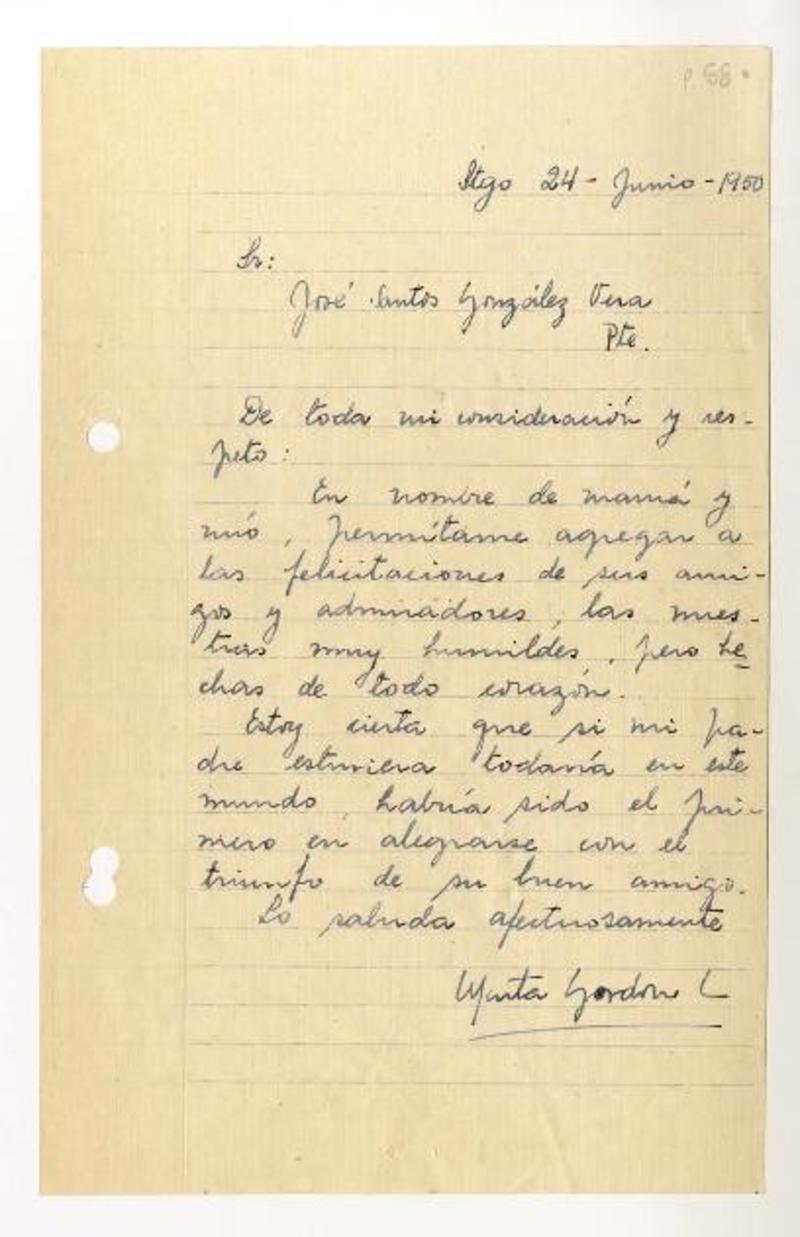 p. 68.
Stgo 24 - Junio - 1950
Sr:
José Santos González Vera
Pte.
De toda mi consideración y res-
peto:
En nombre de mamá y
mío, permítame agregar a
las felicitaciones de sus ami-
gos y admiradores, las nues-
tras muy humildes, pero he
chas de todo corazón.
Estoy cierta que si mi pa-
dre estuviera todavía en este
mundo, habría sido el pri-
mero en alegrarse con el
triunfo de su buen amigo.
Lo saluda afectuosamente
Marta Gordon L